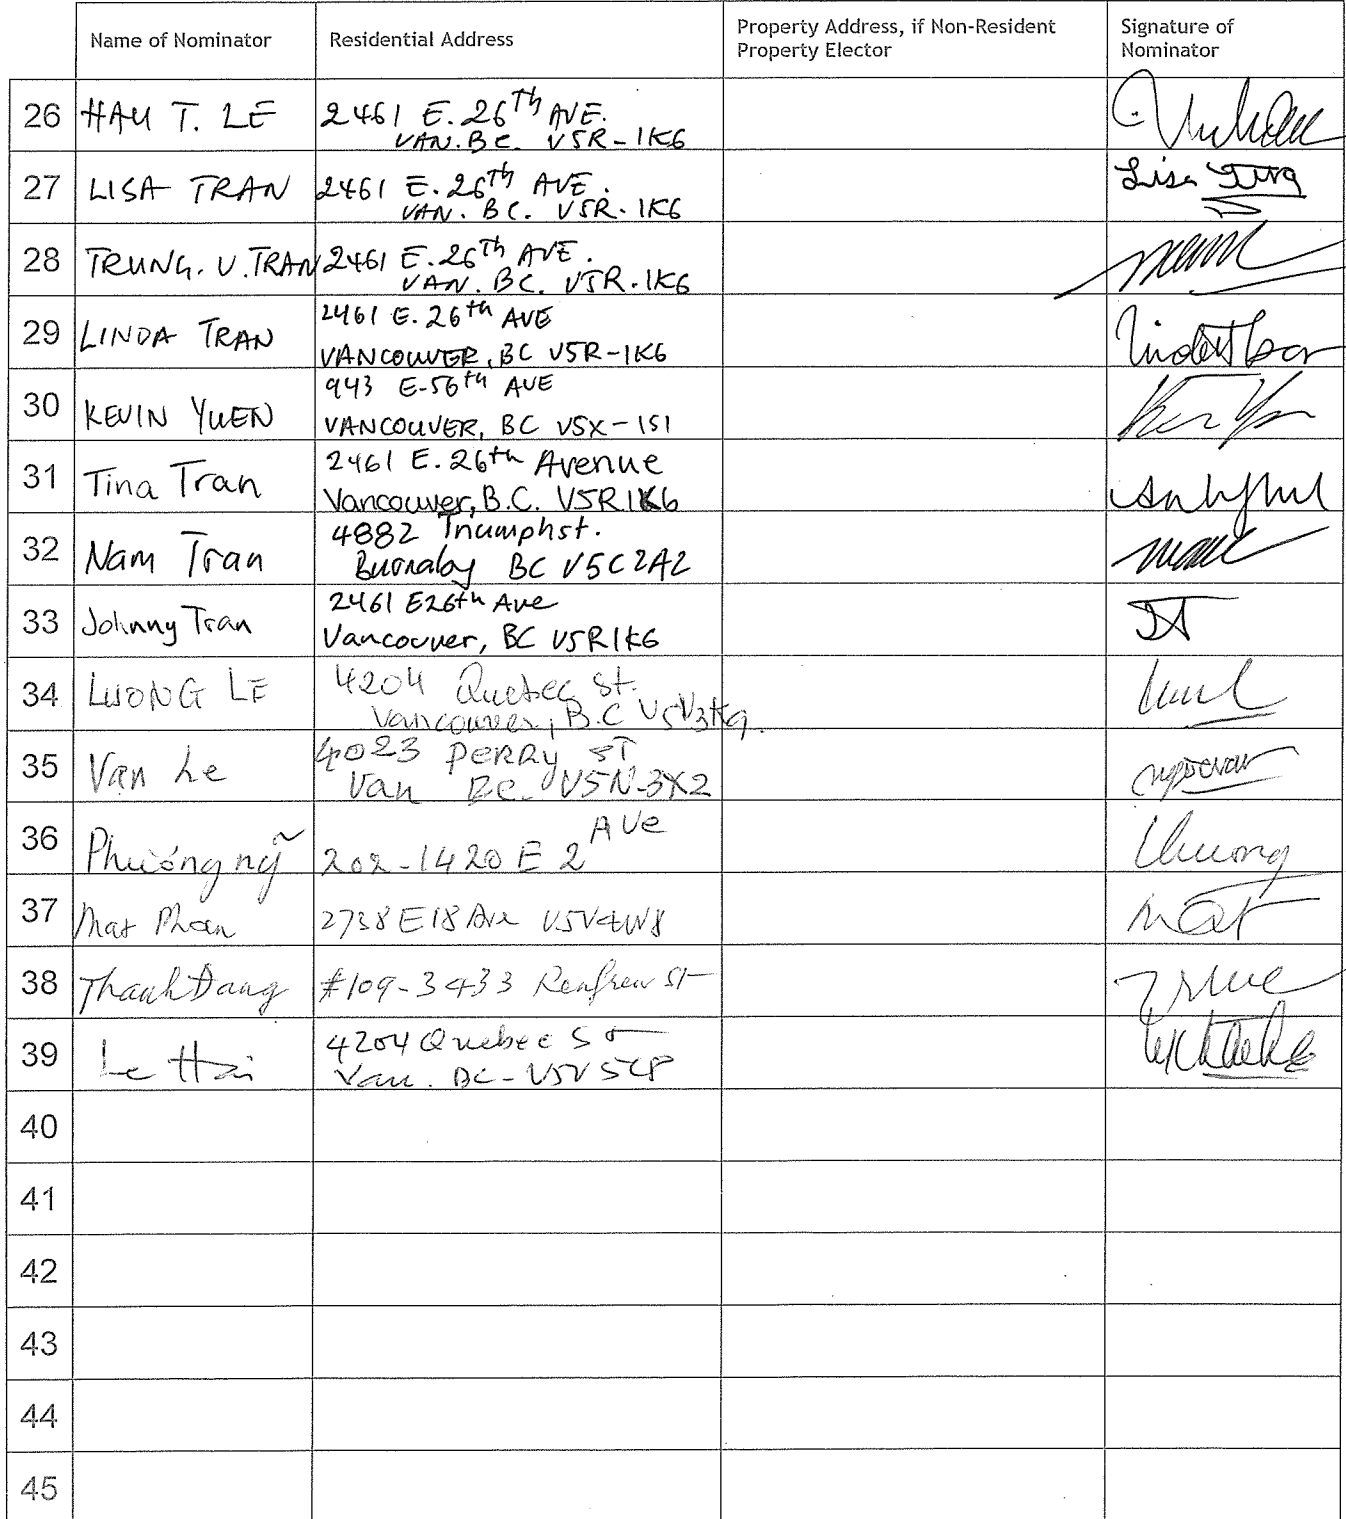 Name of Nominator
Residential Address
Property Address, if Non-Resident
Property Elector
Signature of
Nominator
26 HAU T. LE 2461 E. 26Th AVE.
VAN. BC. V5R-1K6
27 LISA TRAN 2461 E. 26Th AVE. Lisa
VAN. BC. V5R.1K6
28 TRUNG. V. TRAN 2461 E. 26Th AVE.
VAN. BC. V5R.1K6
29 LINDA TRAN 2461 E. 26th AVE
VANCOUVER, BC V5R-1K6
30 KEVIN YUEN 943 E-56th AVE
VANCOUVER, BC V5X-1S1
31 Tina Tran 2461 E. 26th Avenue
Vancouver, B.C. V5R1K6
32 Nam Tran 4882 Triumph st.
Burnaby BC V5C2A2
33 Johnny Tran 2461 E26th Ave JT
Vancouver, BC V5R1K6
34 LUONG LE 4204 Quebec St.
Vancouver, B.C V5V3K9.
35 Vạn Le 4023 PERRY ST
Van BC. V5N-3X2
36 202-1420 E 2 Ave
37 Mat Phan 2738 E 18 Ave V5V4W8 Mat
38 Thanh Đang #109-3433 Renfrew St
39 Le Hai 4204 Quebec St
Van. BC-V5V
40
41
42
43
44
45